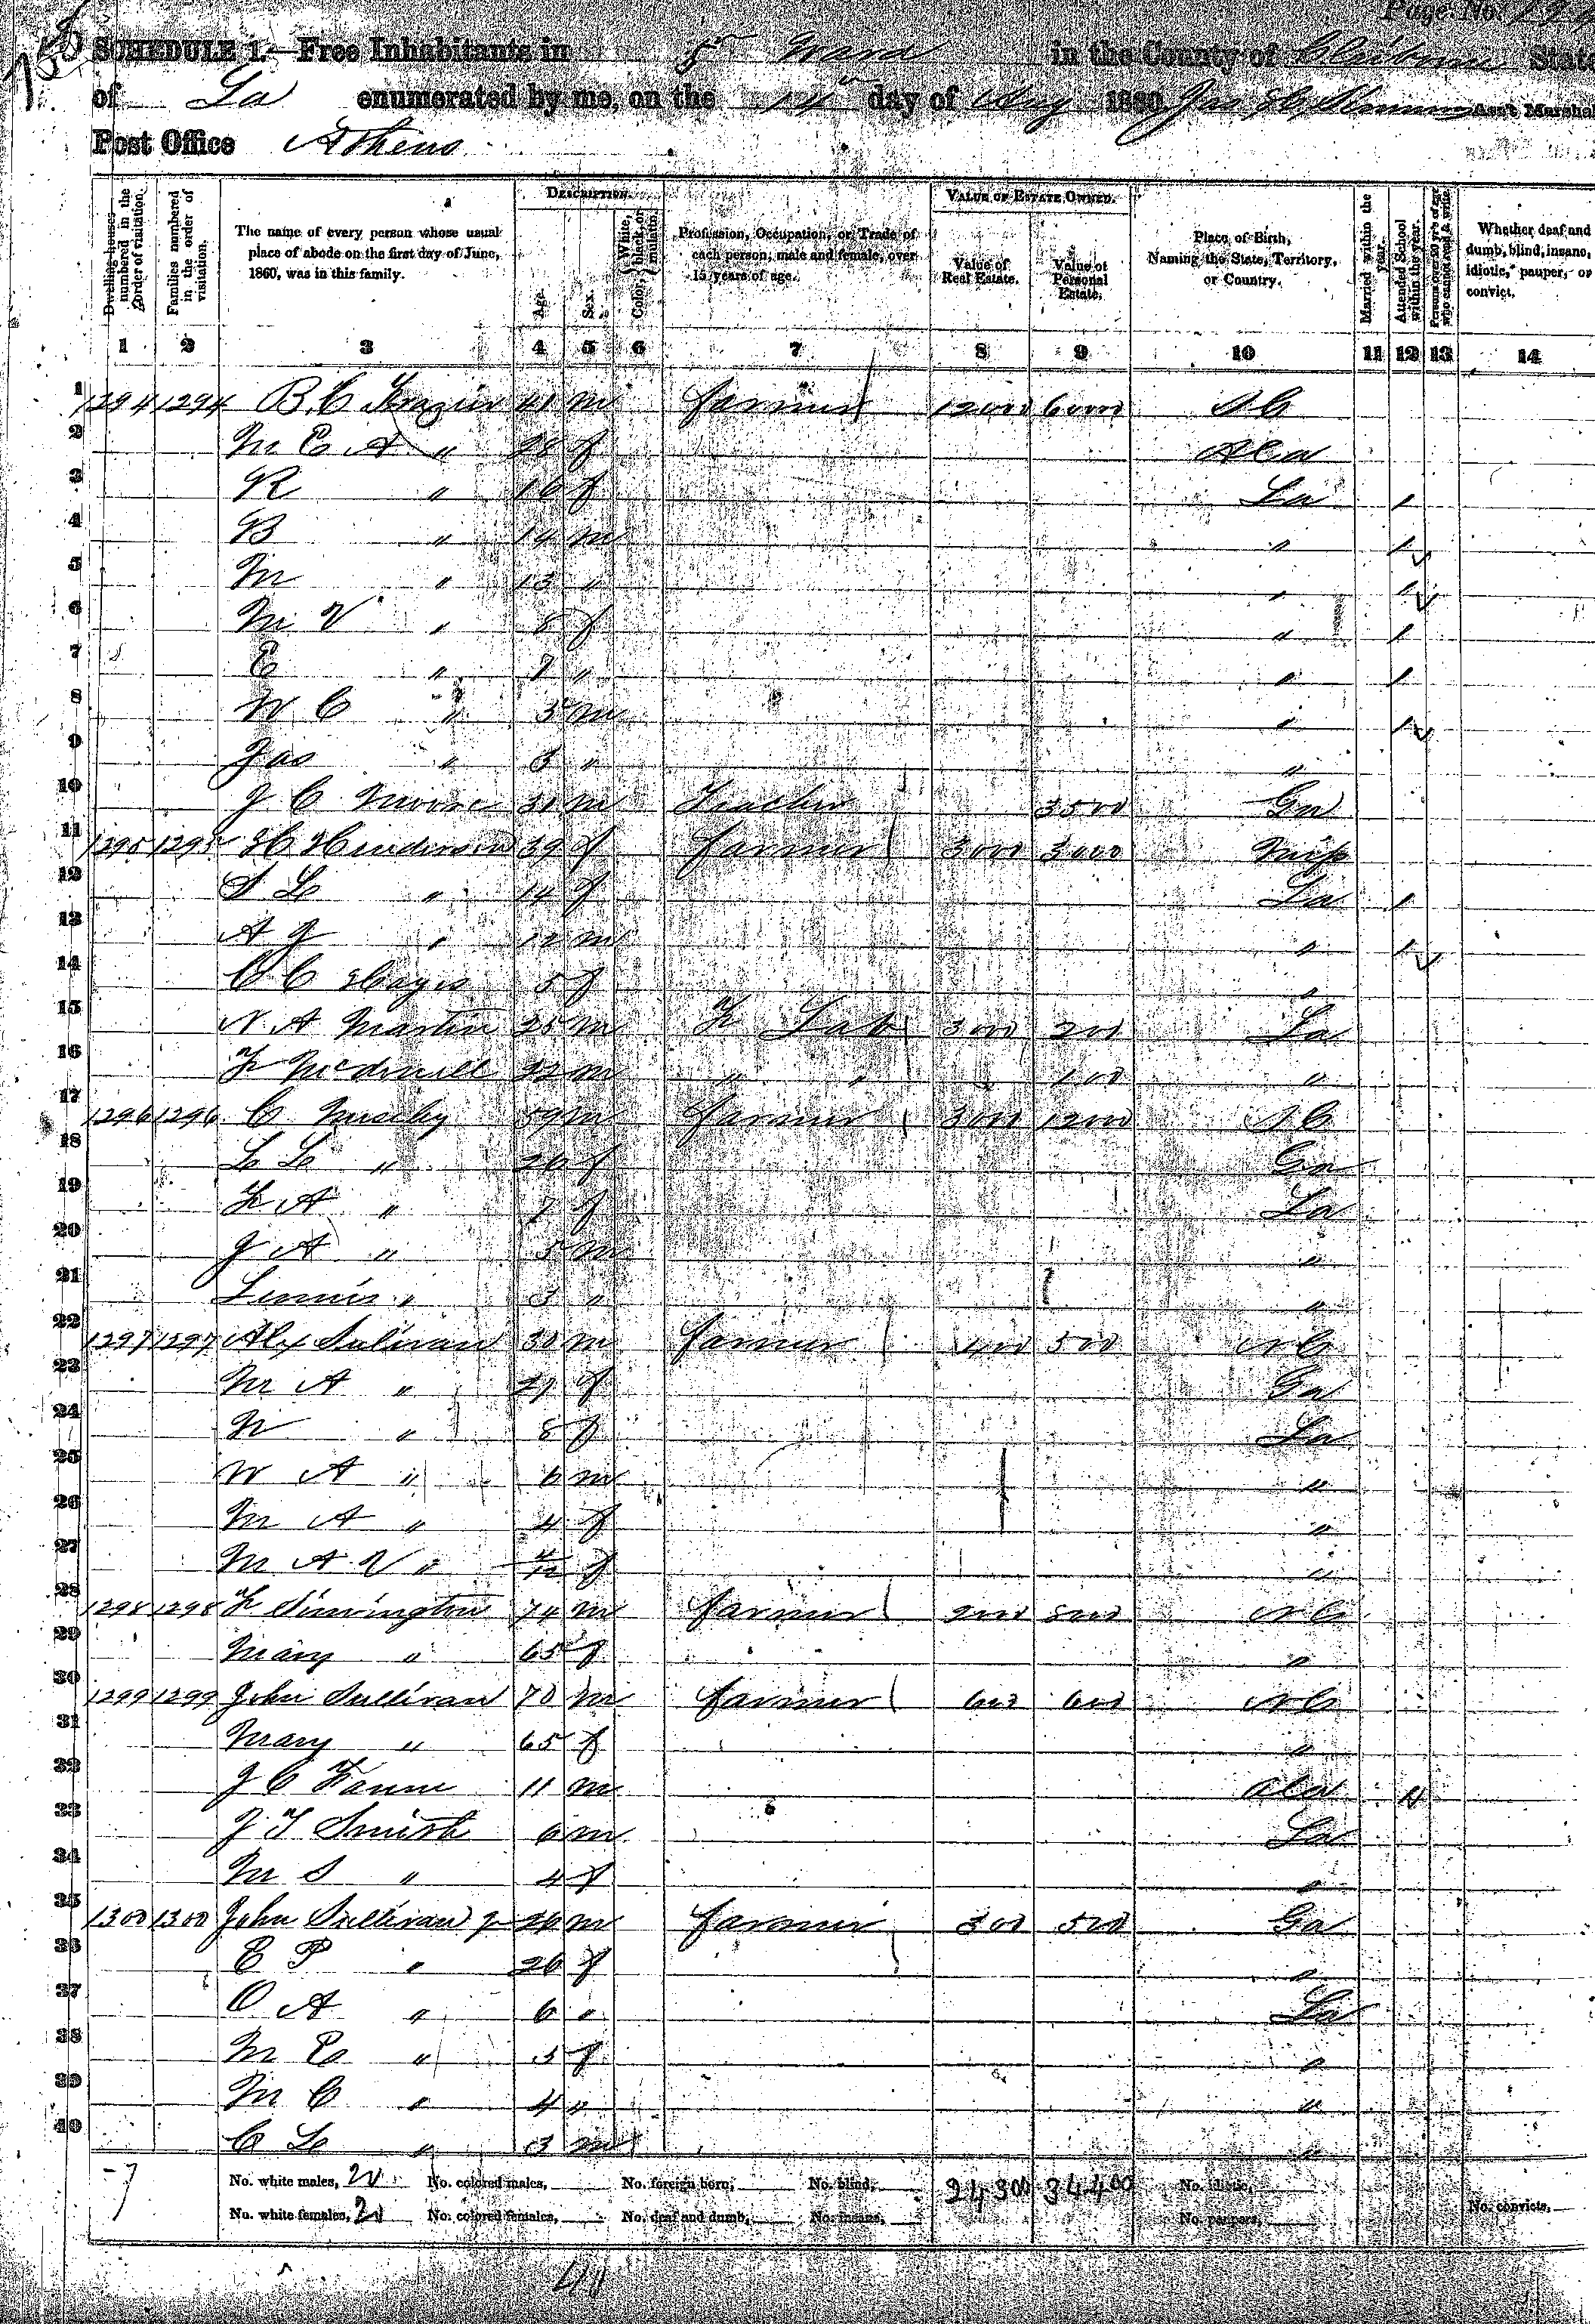 Page No.
SCHEDULE 1.—Free Inhabitants in 5th Ward in the County of Claiborne State
of La enumerated by me, on the 14th day of Aug 1860 Jas Ass't Marshal
Post Office Athens
DESCRIPTION. VALUE OF ESTATE OWNED.
Dwelling-houses numbered in the order of visitation.
Families numbered in the order of visitation.
The name of every person whose usual place of abode on the first day of June, 1860, was in this family.
Age.
Sex.
Color, White, black, or mulatto.
Profession, Occupation, or Trade of each person, male and female, over 15 years of age.
Value of Real Estate.
Value of Personal Estate.
Place of Birth, Naming the State, Territory, or Country.
Married within the year.
Attended School within the year.
Persons over 20 y'rs of age who cannot read & write.
Whether deaf and dumb, blind, insane, idiotic, pauper, or convict.
1 2 3 4 5 6 7 8 9 10 11 12 13 14
1 1294 1294 B. C. Frazier 41 m farmer 12000 6000 S C
2 M E A " 28 f Ala
3 R " 16 f La /
4 B " 14 m " /
5 M " 13 " " /
6 M V " 8 f " /
7 E " 7 " " /
8 W C " 5 m " /
9 Jas " 3 " "
10 J C Moore 31 m Teacher 3500 Ga
11 1295 1295 H Henderson 39 f farmer 3000 3000 Miss
12 S L " 14 f La /
13 A J " 12 m " /
14 C C Hays 5 f "
15 N. A Martin 25 m F Lab 3000 200 La
16 F 22 m " " 100 "
17 1296 1296 C 59 m farmer 3000 12000 S C
18 L L " 26 f Ga
19 F A " 7 f La
20 J A " 5 m "
21 " 3 " "
22 1297 1297 Alex Sulivan 30 m farmer 400 500 N C
23 M A " 27 f Ga
24 N " 8 f La
25 W A " 6 m "
26 M A " 4 f "
27 M A V " 4/12 f "
28 1298 1298 F 74 m farmer 2000 8000 N C
29 Mary " 65 f "
30 1299 1299 John Sullivan 70 m farmer 600 600 N C
31 Mary " 65 f "
32 J C 11 m Ala
33 J T Smith 6 m La
34 M S " 4 f "
35 1300 1300 John Sullivan Jr 26 m farmer 300 500 Ga
36 E P " 26 f "
37 O A " 6 " La
38 M E " 5 f "
39 M C " 4 " "
40 C L " 3 m "
No. white males, 20 No. colored males, No. foreign born, No. blind, 24300 34400 No. idiotic,
No. white females, 20 No. colored females, No. deaf and dumb, No. insane, No. paupers, No. convicts,
40